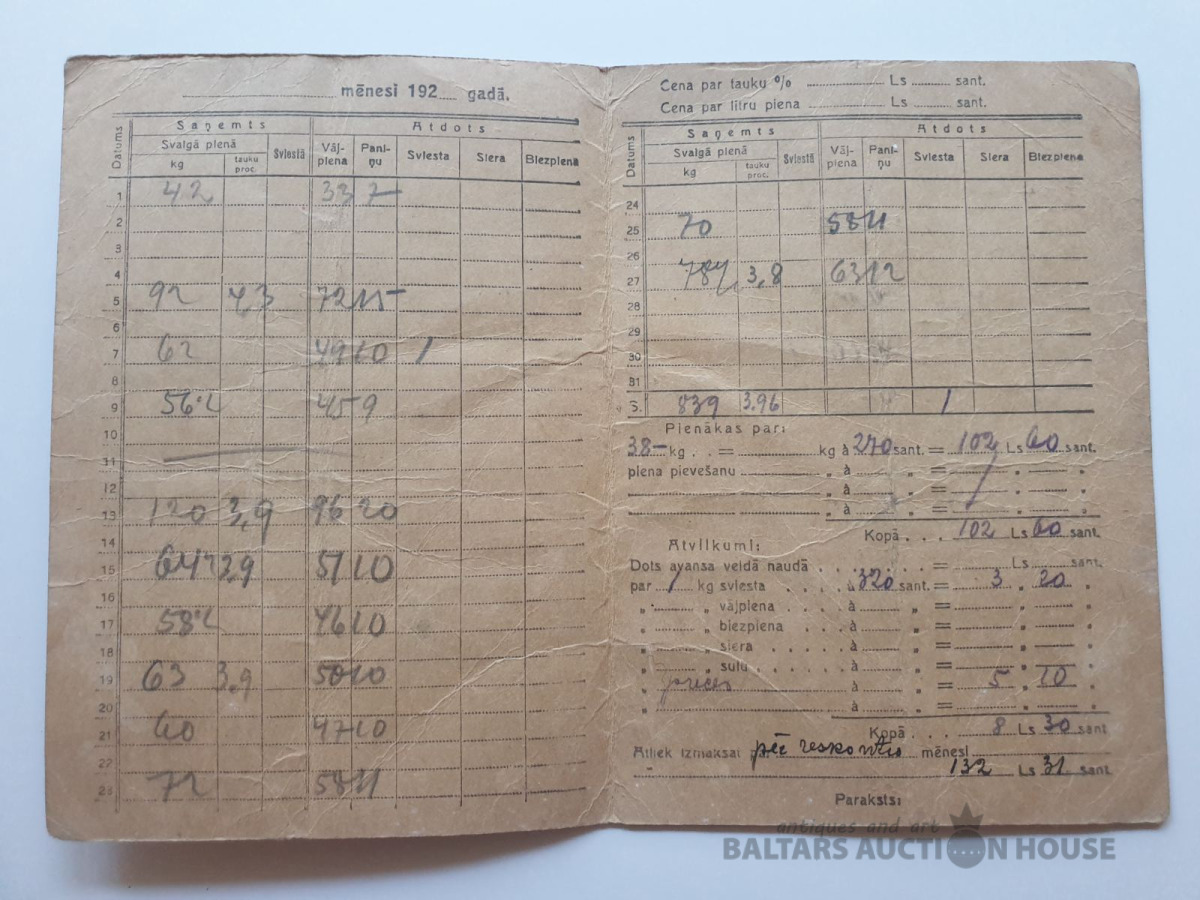 mēnesi 192 gadā.
Datums
Saņemts
Atdots
Svaigā pienā
Sviestā
Vāj-piena
Pani-ņu
Sviesta
Siera
Biezpiena
kg
tauku proc.
1 42 33 7
2
3
4
5 92 4,3 72 15
6
7 62 49 10 1
8
9 56 45 9
10
11
12
13 120 3,9 96 20
14
15 64 3,9 51 10
16
17 58 46 10
18
19 63 3,9 50 10
20
21 60 47 10
22
23 72 58 11
Cena par tauku % Ls sant.
Cena par litru piena Ls sant.
Datums
Saņemts
Atdots
Svaigā pienā
Sviestā
Vāj-piena
Pani-ņu
Sviesta
Siera
Biezpiena
kg
tauku proc.
24
25 70 58 11
26
27 78 3,8 63 12
28
29
30
31
S. 839 3.96 1
Pienākas par:
38 kg = kg à 270 sant. = 102 Ls 60 sant.
piena pievešanu „ à „ = „ „
„ à „ = „ „
„ à „ = „ „
Kopā . . . 102 Ls 60 sant.
Atvilkumi:
Dots avansa veidā naudā = Ls sant.
par 1 kg sviesta à 320 sant. = 3 „ 20 „
„ „ vājpiena . . . à „ = „ „
„ „ biezpiena . . . à „ = „ „
„ „ siera à „ = „ „
„ „ sulu à „ = „ „
„ preces à „ = 5 „ 10 „
„ à „ = „ „
Kopā . . . 8 Ls 30 sant
Atliek izmaksāt pēc reskontro mēnesi
132 Ls 31 sant
Paraksts:
antiques and art
BALTARS AUCTION HOUSE